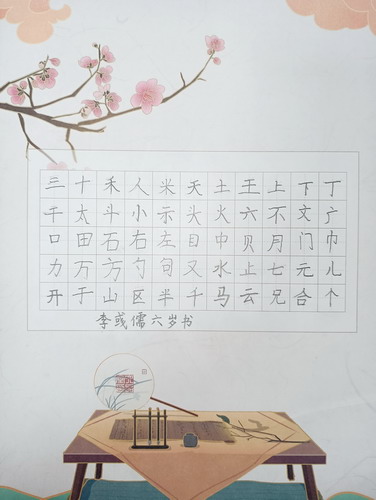 三十禾人米天土王上下丁
干太斗小示头火六不文广
口田石右左目中贝月门巾
力万方勺句又水止七元儿
开于山区半千马云兄合个
李彧儒六岁书